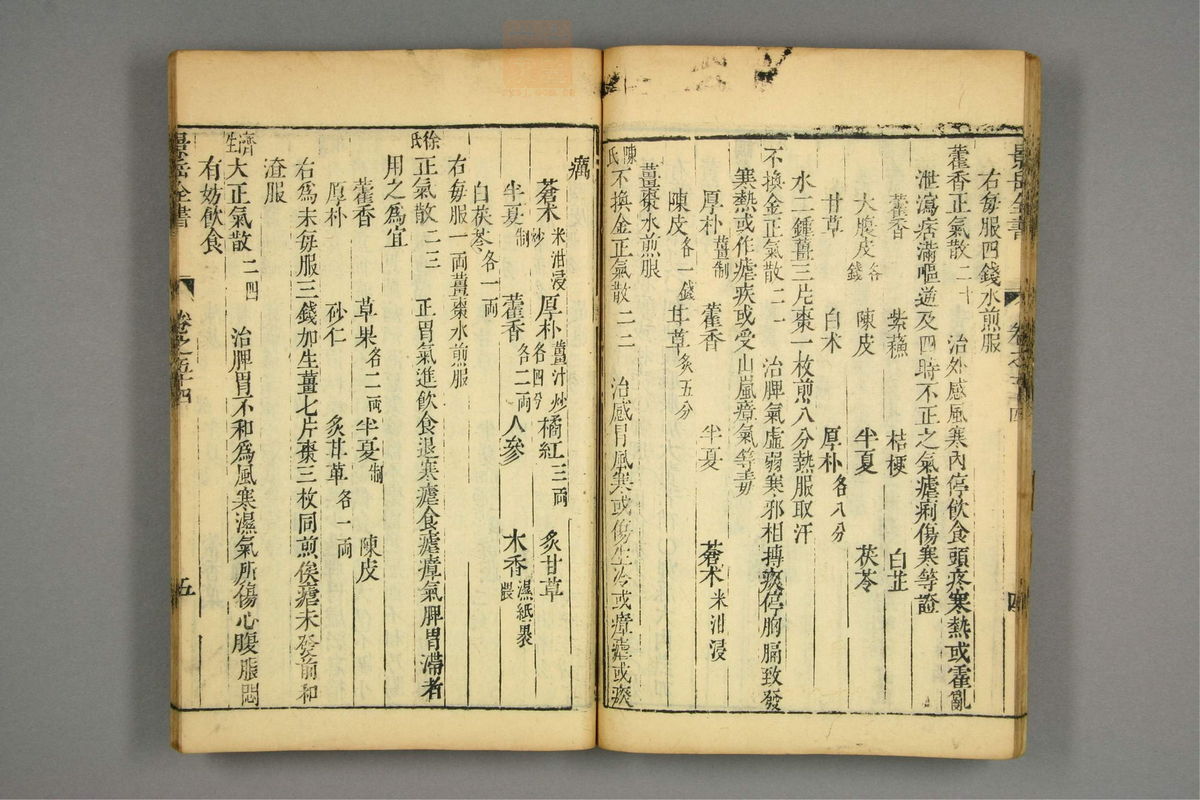 景岳全書 卷之五十四 四
右每服四錢水煎服
藿香正氣散二十 治外感風寒內停飲食頭疼寒熱或霍亂
泄瀉痞滿嘔逆及四時不正之氣瘧痢傷寒等證
藿香 紫蘇 桔梗 白芷
大腹皮各錢 陳皮 半夏 茯苓
甘草 白术 厚朴各八分
水二鍾薑三片棗一枚煎八分熱服取汗
不換金正氣散二一 治脾氣虛弱寒邪相搏痰停胸膈致發
寒熱或作瘧疾或受山嵐瘴氣等毒
厚朴薑制 藿香 半夏 蒼术米泔浸
陳皮各一錢 甘草炙五分
薑棗水煎服
陳氏不換金正氣散二二 治感冒風寒或傷生冷或瘴瘧或疫
癘
蒼术米泔浸炒 厚朴薑汁炒各四兮 橘紅三兩 炙甘草
半夏制 藿香各二兩 人參 木香濕紙裹煨
白茯苓各一兩
右每服一兩薑棗水煎服
徐氏正氣散二三 正胃氣進飲食退寒瘧食瘧瘴氣脾胃滯者
用之爲宜
藿香 草果各二兩 半夏制 陳皮
厚朴 砂仁 炙甘草各一兩
右爲末每服三錢加生薑七片棗三枚同煎俟瘧未發前和
渣服
濟生大正氣散二四 治脾胃不和爲風寒濕氣所傷心腹脹悶
有妨飲食
景岳全書 卷之五十四 五